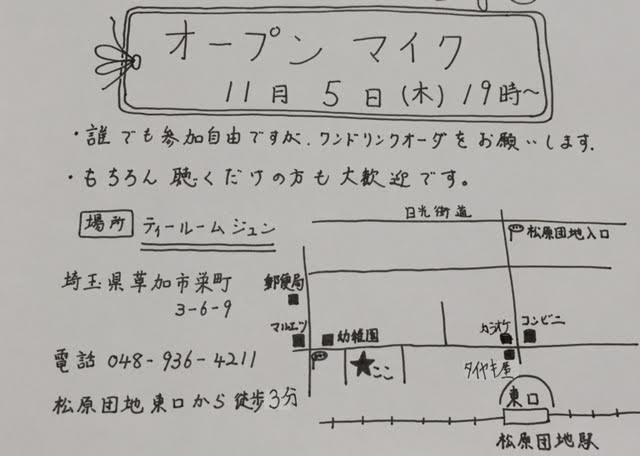 オープン マイク
11月 5日(木) 19時〜
・誰でも参加自由ですが、ワンドリンクオーダをお願いします.
・もちろん聴くだけの方も大歓迎です。
場所 ティールームジュン
埼玉県草加市栄町
3-6-9
電話 048-936-4211
松原団地東口から徒歩3分
日光街道
松原団地入口
郵便局
マルエツ
幼稚園
カラオケ
コンビニ
ここ
タイヤキ屋
東口
松原団地駅